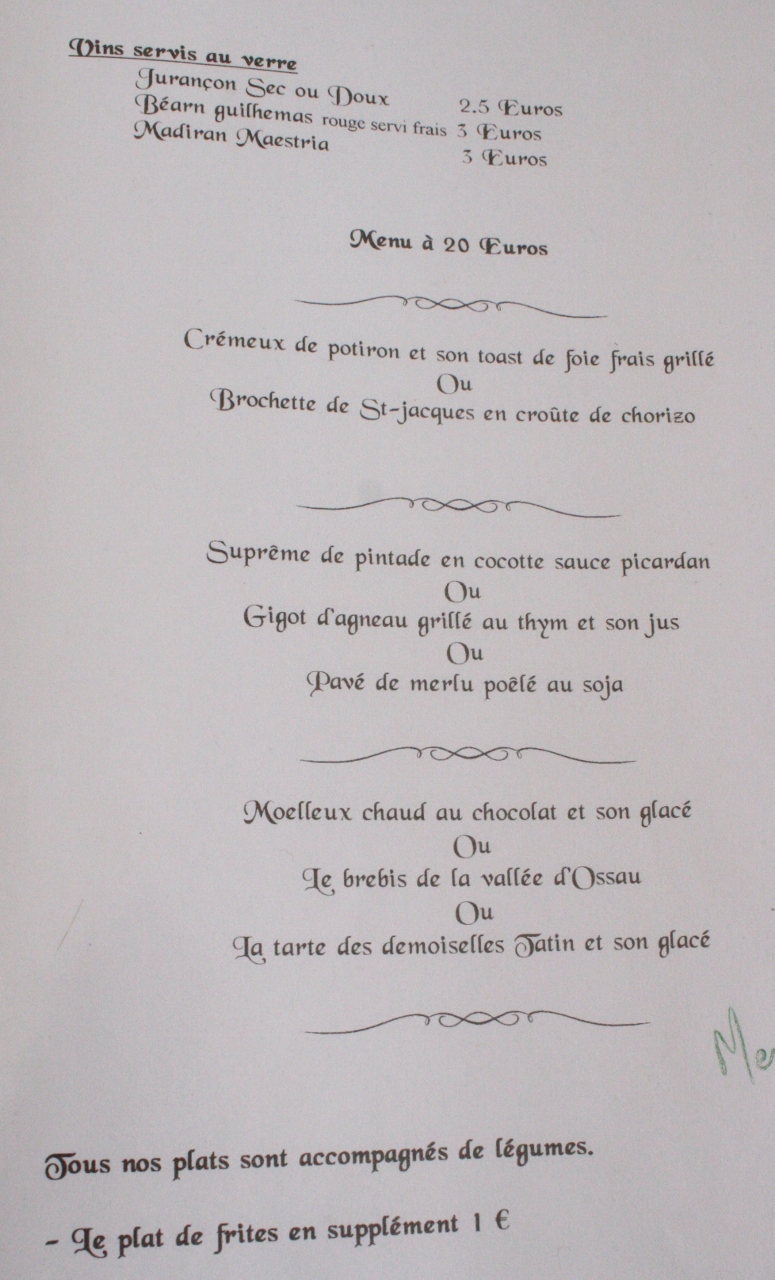 Vins servis au verre
Jurançon Sec ou Doux 2.5 Euros
Béarn guilhemas rouge servi frais 3 Euros
Madiran Maestria 3 Euros
Menu à 20 Euros
Crémeux de potiron et son toast de foie frais grillé
Ou
Brochette de St-jacques en croûte de chorizo
Suprême de pintade en cocotte sauce picardan
Ou
Gigot d'agneau grillé au thym et son jus
Ou
Pavé de merlu poêlé au soja
Moelleux chaud au chocolat et son glacé
Ou
Le brebis de la vallée d'Ossau
Ou
La tarte des demoiselles Tatin et son glacé
Tous nos plats sont accompagnés de légumes.
- Le plat de frites en supplément 1 €